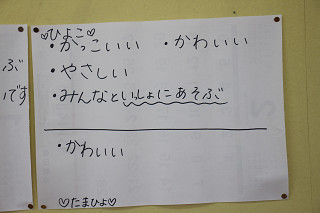 ♡ひよこ♡
・かっこいい ・かわいい
・やさしい
・みんなといっしょにあそぶ
・かわいい
♡たまひよ♡
ぶ
です